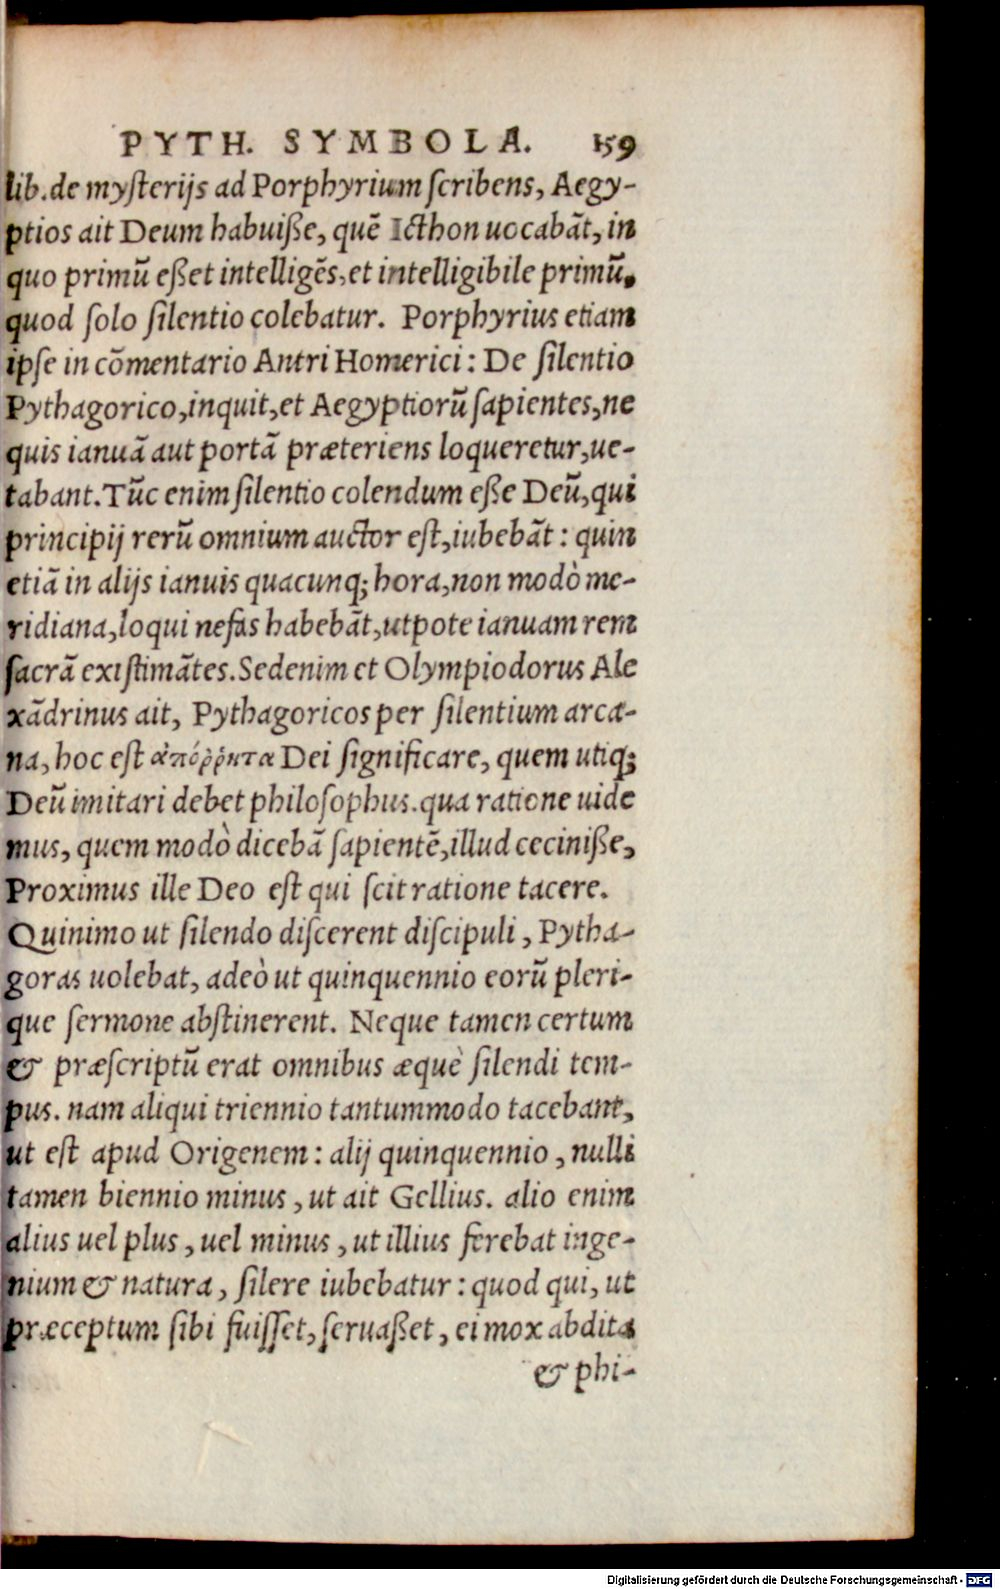 PYTH. SYMBOLA. 159
lib. de mysterijs ad Porphyrium scribens, Aegy-
ptios ait Deum habuiße, quē Icthon uocabāt, in
quo primū eßet intelligēs, et intelligibile primū,
quod solo silentio colebatur. Porphyrius etiam
ipse in cōmentario Antri Homerici: De silentio
Pythagorico, inquit, et Aegyptiorū sapientes, ne
quis ianuā aut portā præteriens loqueretur, ue-
tabant. Tūc enim silentio colendum eße Deū, qui
principij rerū omnium auctor est, iubebāt: quin
etiā in alijs ianuis quacunq; hora, non modò me-
ridiana, loqui nefas habebāt, utpote ianuam rem
sacrā existimātes. Sedenim et Olympiodorus Ale
xādrinus ait, Pythagoricos per silentium arca-
na, hoc est ἀπόῤῥητα Dei significare, quem utiq;
Deū imitari debet philosophus. qua ratione uide
mus, quem modò dicebā sapientē, illud ceciniße,
Proximus ille Deo est qui scit ratione tacere.
Quinimo ut silendo discerent discipuli, Pytha-
goras uolebat, adeò ut quinquennio eorū pleri-
que sermone abstinerent. Neque tamen certum
& præscriptū erat omnibus æquè silendi tem-
pus. nam aliqui triennio tantummodo tacebant,
ut est apud Origenem: alij quinquennio, nulli
tamen biennio minus, ut ait Gellius. alio enim
alius uel plus, uel minus, ut illius ferebat inge-
nium & natura, silere iubebatur: quod qui, ut
præceptum sibi fuisset, seruaßet, ei mox abdita
& phi-
Digitalisierung gefördert durch die Deutsche Forschungsgemeinschaft - DFG